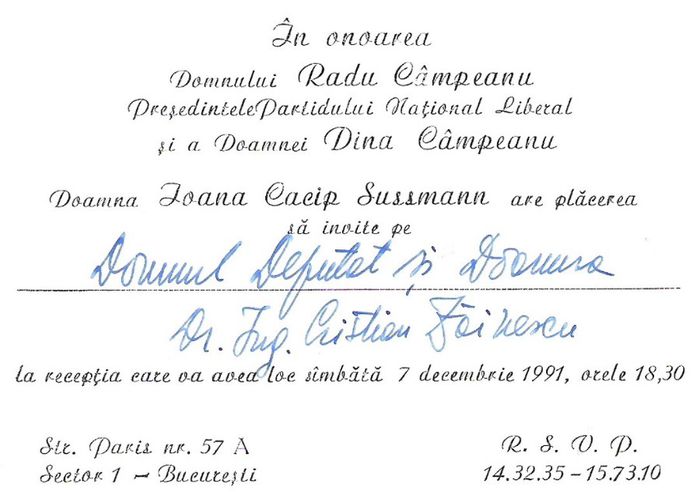 În onoarea
Domnului Radu Câmpeanu
Președintele Partidului Național Liberal
și a Doamnei Dina Câmpeanu
Doamna Ioana Cacip Sussmann are plăcerea
să invite pe
Domnul Deputat și Doamna
Dr. Ing. Cristian Zăinescu
la recepția care va avea loc sîmbătă 7 decembrie 1991, orele 18,30
Str. Paris nr. 57 A
Sector 1 – București
R. S. V. P.
14.32.35 – 15.73.10